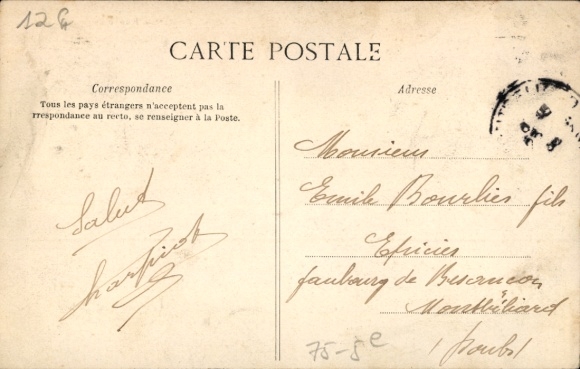 12 €
CARTE POSTALE
Correspondance
Tous les pays étrangers n'acceptent pas la
rrespondance au recto, se renseigner à la Poste.
Adresse
Salut
Monsieur
Emile Bourlier fils
Epicier
faubourg de Besançon
Montbéliard
(Doubs)
75-5e